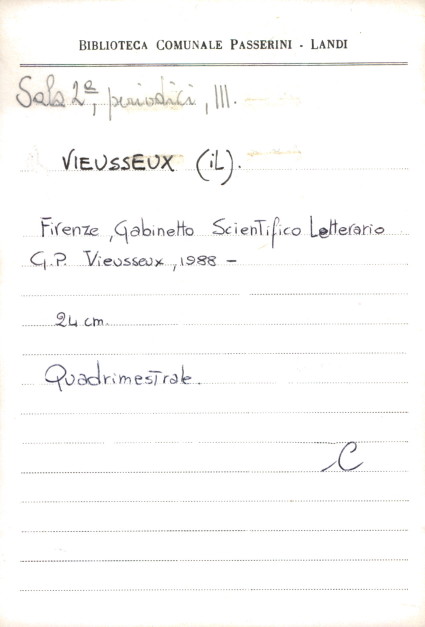 BIBLIOTECA COMUNALE PASSERINI - LANDI
Sala 2ª, periodici, III.
VIEUSSEUX (iL).
Firenze, Gabinetto Scientifico Letterario
G.P. Vieusseux, 1988 -
24 cm.
Quadrimestrale.
C